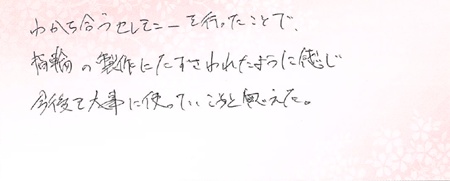 わかち合うセレモニーを行ったことで、
指輪の製作にたずさわれたように感じ
今後も大事に使っていこうと思えた。